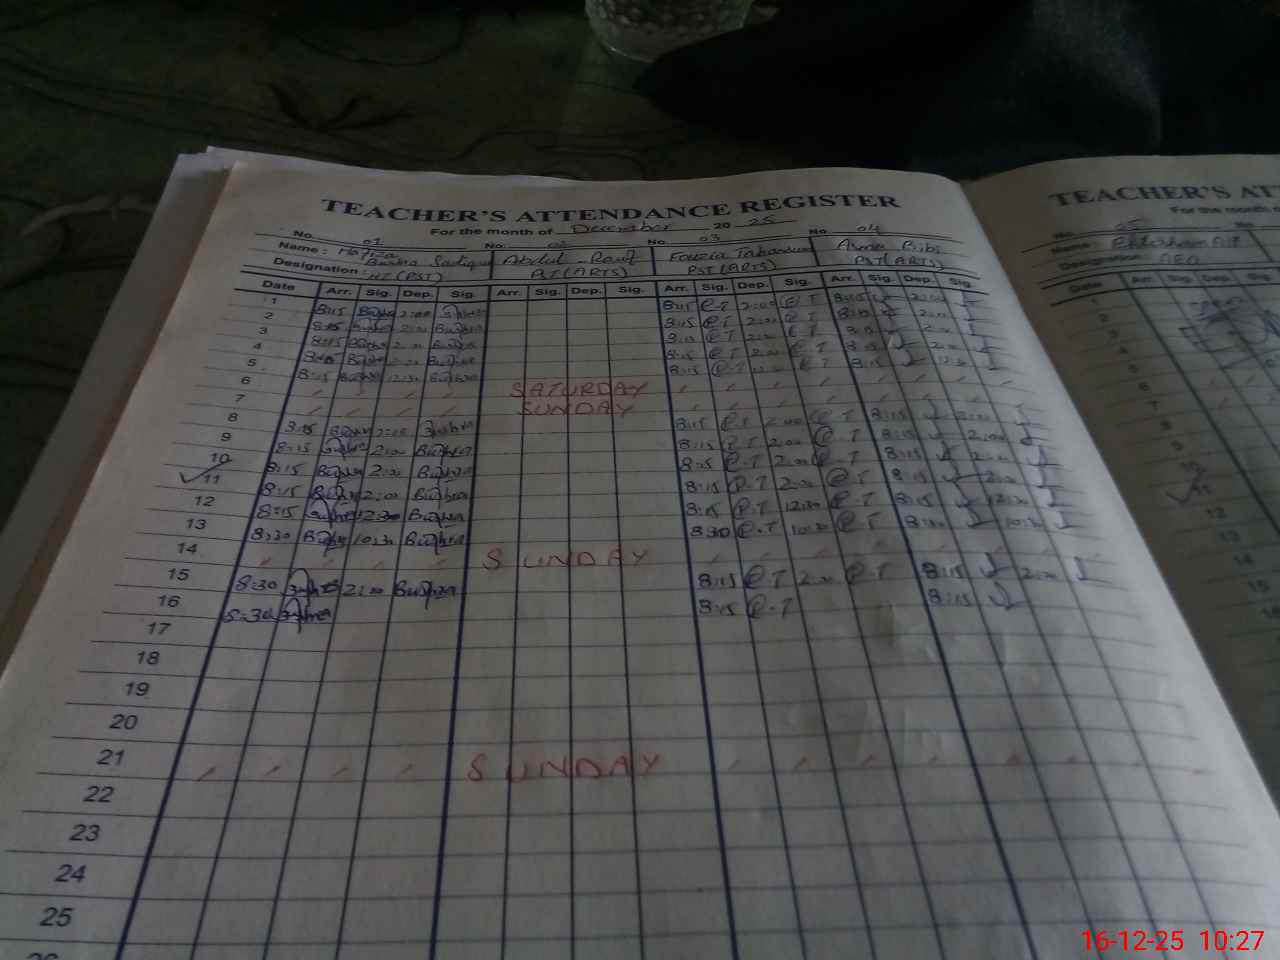 TEACHER'S ATTENDANCE REGISTER
For the month of December 20 25
No. 01 No. 02 No. 03 No. 04
Name: Hafiza Bushra Abdul Rauf Fouzia Tabassum Asma Bibi
Designation: HT (PST) PST (ARTS) PST (ARTS) PST (ARTS)
Date Arr. Sig. Dep. Sig. Arr. Sig. Dep. Sig. Arr. Sig. Dep. Sig. Arr. Sig. Dep. Sig.
1 8:15 Bushra 2:00 Bushra 8:15 F.T 2:00 F.T 8:15 2:00
2 8:15 Bushra 2:00 Bushra 8:15 F.T 2:00 F.T 8:15 2:00
3 8:15 Bushra 2:00 Bushra 8:15 F.T 2:00 F.T 8:15 2:00
4 Bushra 2:00 Bushra 8:15 F.T 2:00 F.T 8:15 2:00
5 8:15 Bushra 12:30 Bushra 8:15 F.T 12:30 F.T 8:15 12:30
6 SATURDAY
7 SUNDAY
8 8:15 Bushra 2:00 Bushra 8:15 F.T 2:00 F.T 8:15 2:00
9 8:15 Bushra 2:00 Bushra 8:15 F.T 2:00 F.T 8:15 2:00
10 8:15 Bushra 2:00 Bushra 8:15 F.T 2:00 F.T 8:15 2:00
11 8:15 Bushra 2:00 Bushra 8:15 F.T 2:00 F.T 8:15 2:00
12 8:15 Bushra 12:30 Bushra 8:15 F.T 12:30 F.T 8:15 12:30
13 8:30 Bushra 10:30 Bushra 8:30 F.T 10:30 F.T 8:30 10:30
14 SUNDAY
15 8:30 Bushra 2:00 Bushra 8:15 F.T 2:00 F.T 8:15 2:00
16 8:30 Bushra 8:15 F.T 8:15
17
18
19
20
21 SUNDAY
22
23
24
25
26
TEACHER'S AT
For the month
No. 05 No.
Name:
Designation: AEO
Date Arr. Sig. Dep. Sig.
1
2
3
4
5
6
7
8
9
10
11
12
13
14
15
16
16-12-25 10:27